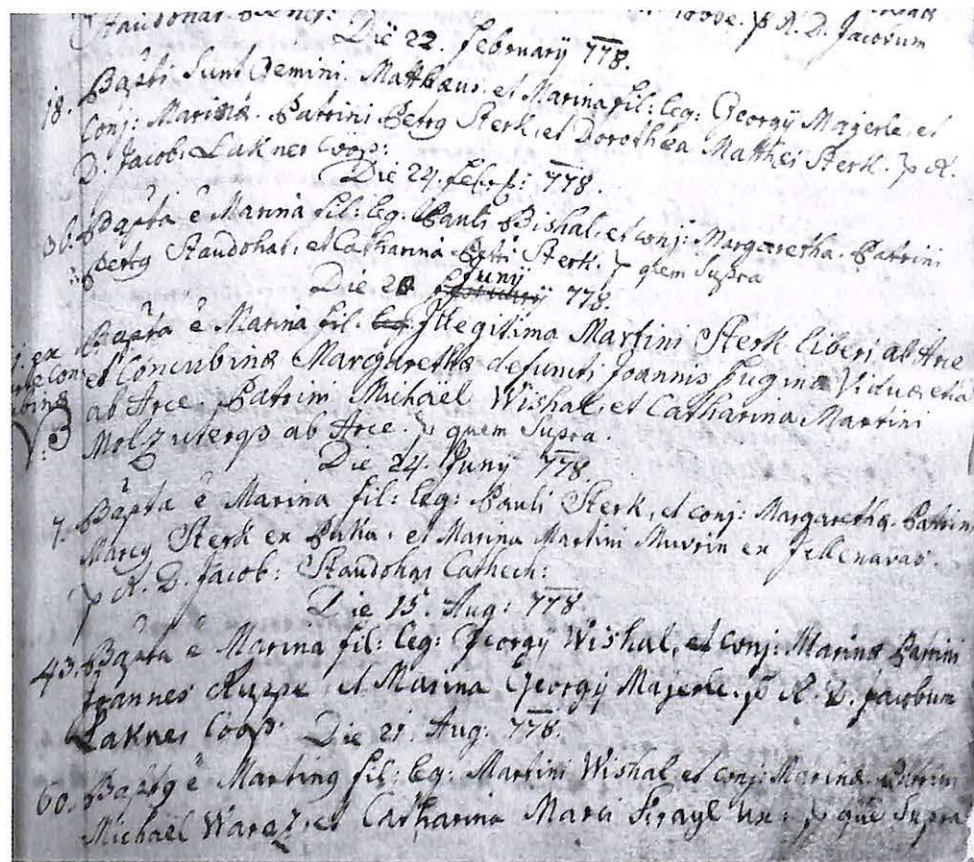 Staudohar p R. D. Jacobum
Die 22. February 778.
18. Bapti sunt Gemini Matthæus et Marina fil: leg: Georgÿ Majerle, et
Conj: Marinæ. Patrini Petrg Sterk, et Dorothea Matthei Sterk. p R.
D. Jacob: Lakner Coop:
Die 24. Febr: 778.
36. Bapta e Marina fil: leg: Pauli Bishal, et conj: Margaretha. Patrini
Petrg Staudohar, et Catharina Petri Sterk. p quem Supra
Junÿ
Die 28 778
Bapta e Marina fil. Jllegitima Martini Sterk liberi ab Arce
et Concubinæ Margarethæ defuncti Joannis Fugina Viduæ etia
ab Arce. Patrini Michäel Wishal, et Catharina Martini
ab Arce. p quem Supra.
Die 24. Junÿ 778.
7. Bapta e Marina fil: leg: Pauli Sterk, et conj: Margaretha. Patrini
Marcg Sterk ex et Marina Martini Muvrin ex
p R. D. Jacob: Staudohar Cathech:
Die 15. Aug: 778.
43. Bapta e Marina fil: leg: Georgÿ Wishal, et conj: Marinæ Patrini
Joannes Ruppe, et Marina Georgÿ Majerle. p R. D. Jacobum
Lakner Coop: Die 21. Aug: 778.
60. Baptg e Marting fil: leg: Martini Wishal et conj: Marinæ. Patrini
Michäel et Catharina Marci ux: p que Supra